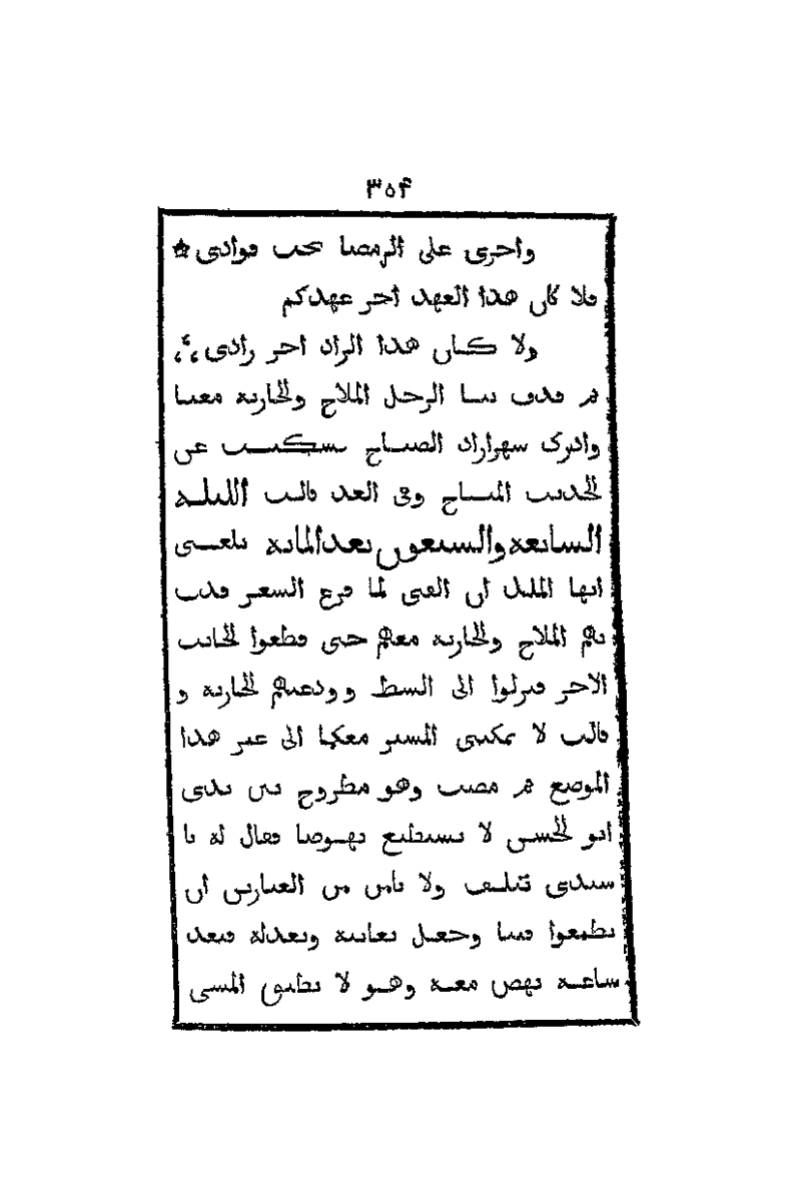 ٣٥۴
واجرى على الرمضا بحب فوادى *
فلا كان هذا العهد اخر عهدكم
ولا كان هذا الزاد اخر زادى
ثم قدف بنا الرجل الملاح والجارية معنا
وادرك شهرازاد الصباح فسكتت عن
الحديث المباح وفى الغد قالت الليلة
السابعة والسبعون بعد المائة بلغنى
ايها الملك ان الفتى لما فرغ الشعر قدف
بهم الملاح والجارية معهم حتى قطعوا الجانب
الاخر فنزلوا الى الشط وودعتهم الجارية و
قالت لا يمكننى المسير معكما الى غير هذا
الموضع ثم مضت وهو مطروح بين يدى
ابو الحسن لا يستطيع نهوضا فقال له يا
سيدى نتلف ولا نامن من العيارين ان
يطمعوا فينا وجعل يعاتبه ويعذله فبعد
ساعة نهض معه وهو لا يطيق المشى